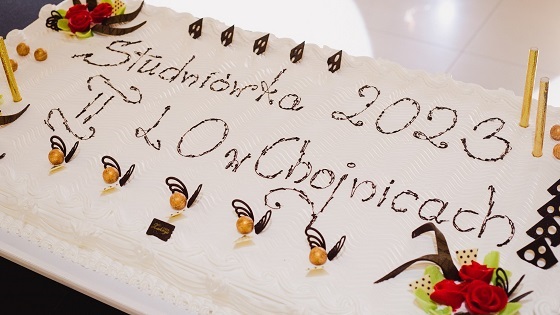 Studniówka 2023
II LO w Chojnicach